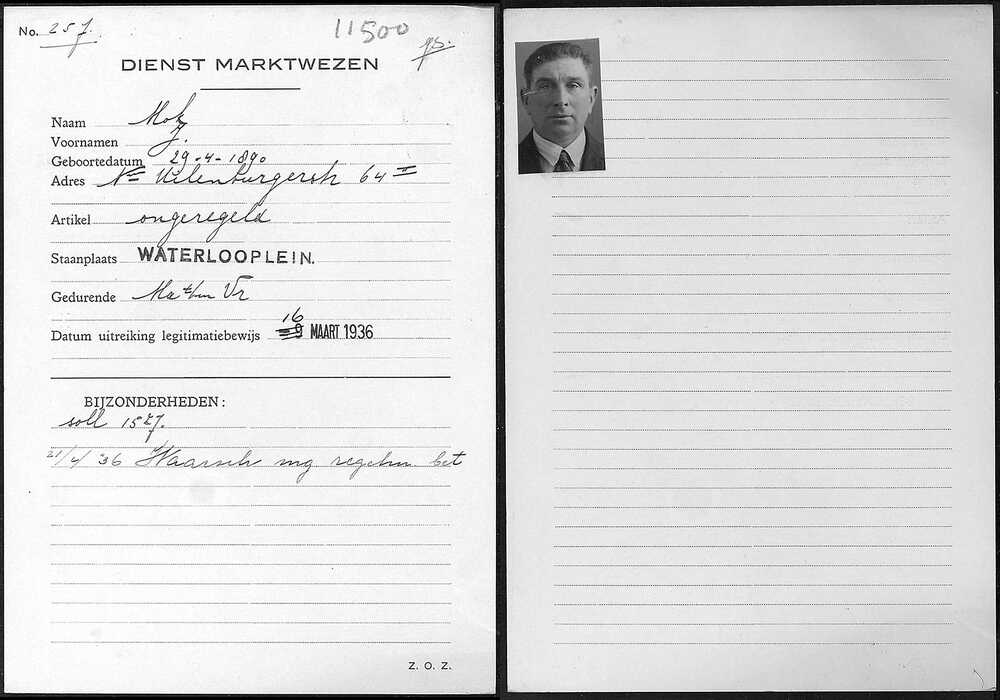 No. 257.
11500
DIENST MARKTWEZEN
Naam Mok
Voornamen J.
Geboortedatum 29-4-1890
Adres Nwe Uilenburgerstr 64 II
Artikel ongeregeld
Staanplaats WATERLOOPLEIN.
Gedurende Ma t/m Vr
16
Datum uitreiking legitimatiebewijs 9 MAART 1936
BIJZONDERHEDEN:
soll 1527.
21/4 36 Waarsch mg regelm. bet
Z. O. Z.